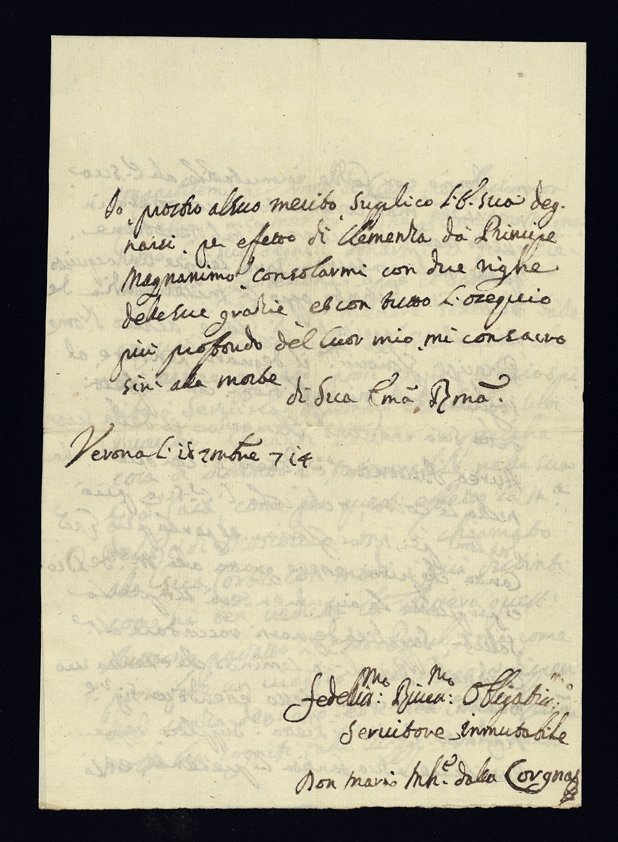 Io, prostro al suo merito, suplico l'E. sua deg-
narsi, per efetto di Clemenza da Principe
Magnanimo, consolarmi con due righe
dele sue grazie et con tutto l'ozequio
più profondo del Cuor mio, mi consacro
sini ala morte
di Sua Ema. Rma.
Verona li 18 zmbre 714
fedelis:mo Riuer:mo Obligatis:mo
seruitore inmutabile
Don Mario dala Corgna